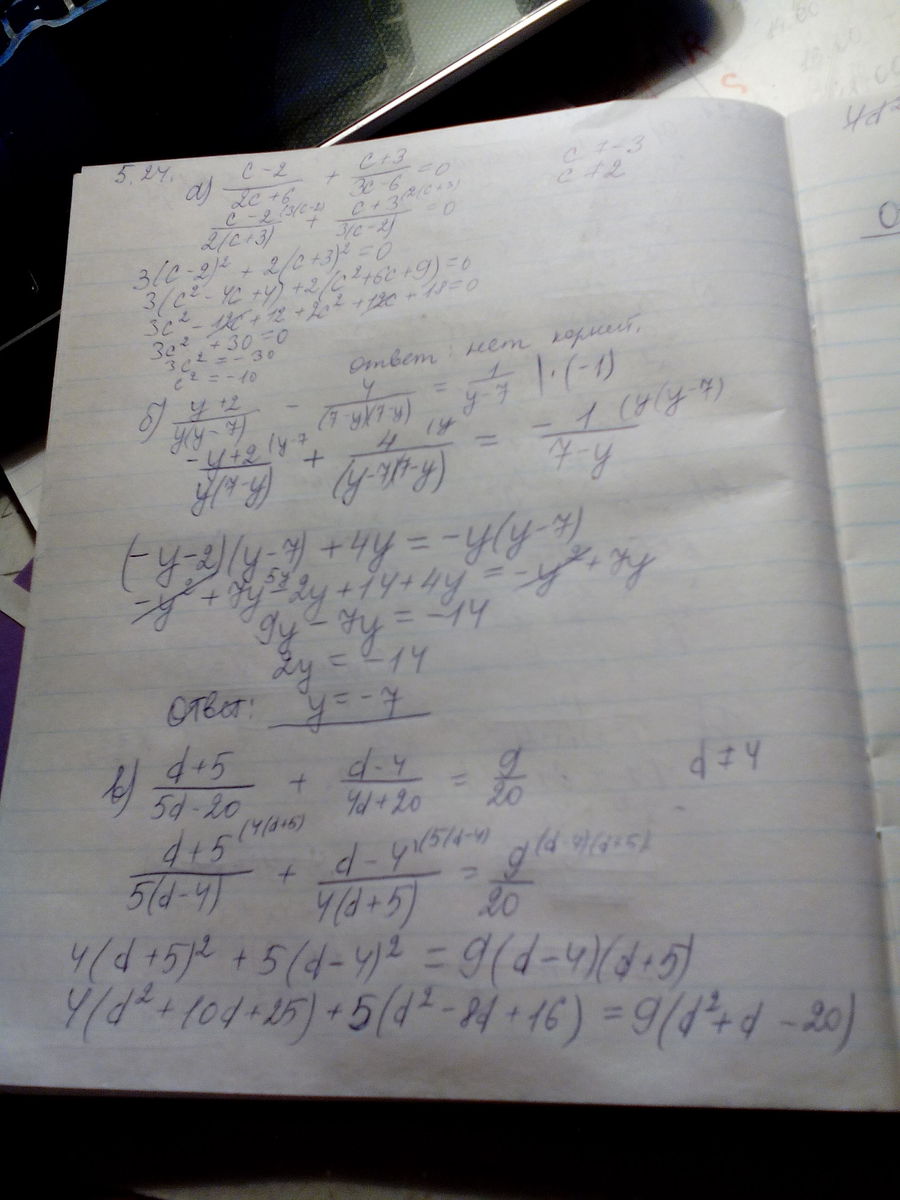 5.24.
а) (c-2)/(2c+6) + (c+3)/(3c-6) = 0    c ≠ -3
c ≠ 2
(c-2)/(2(c+3)) (3(c-2) + (c+3)/(3(c-2)) (2(c+3) = 0
3(c-2)² + 2(c+3)² = 0
3(c² - 4c + 4) + 2(c² + 6c + 9) = 0
3c² - 12c + 12 + 2c² + 12c + 18 = 0
3c² + 30 = 0
3c² = -30
c² = -10    Ответ: нет корней.
б) (y+2)/(y(y-7)) - 4/((7-y)(7-y)) = 1/(y-7) | · (-1)
-(y+2)/(y(7-y)) (y-7 + 4/((y-7)(7-y)) (y = - 1/(7-y) (y(y-7)
(-y-2)(y-7) + 4y = -y(y-7)
-y² + 7y - 2y + 14 + 4y = -y² + 7y
9y - 7y = -14
2y = -14
Ответ: y = -7
в) (d+5)/(5d-20) + (d-4)/(4d+20) = 9/20    d ≠ 4
(d+5)/(5(d-4)) (4(d+5) + (d-4)/(4(d+5)) (5(d-4) = 9/20 (d-4)(d+5)
4(d+5)² + 5(d-4)² = 9(d-4)(d+5)
4(d² + 10d + 25) + 5(d² - 8d + 16) = 9(d² + d - 20)
4d²